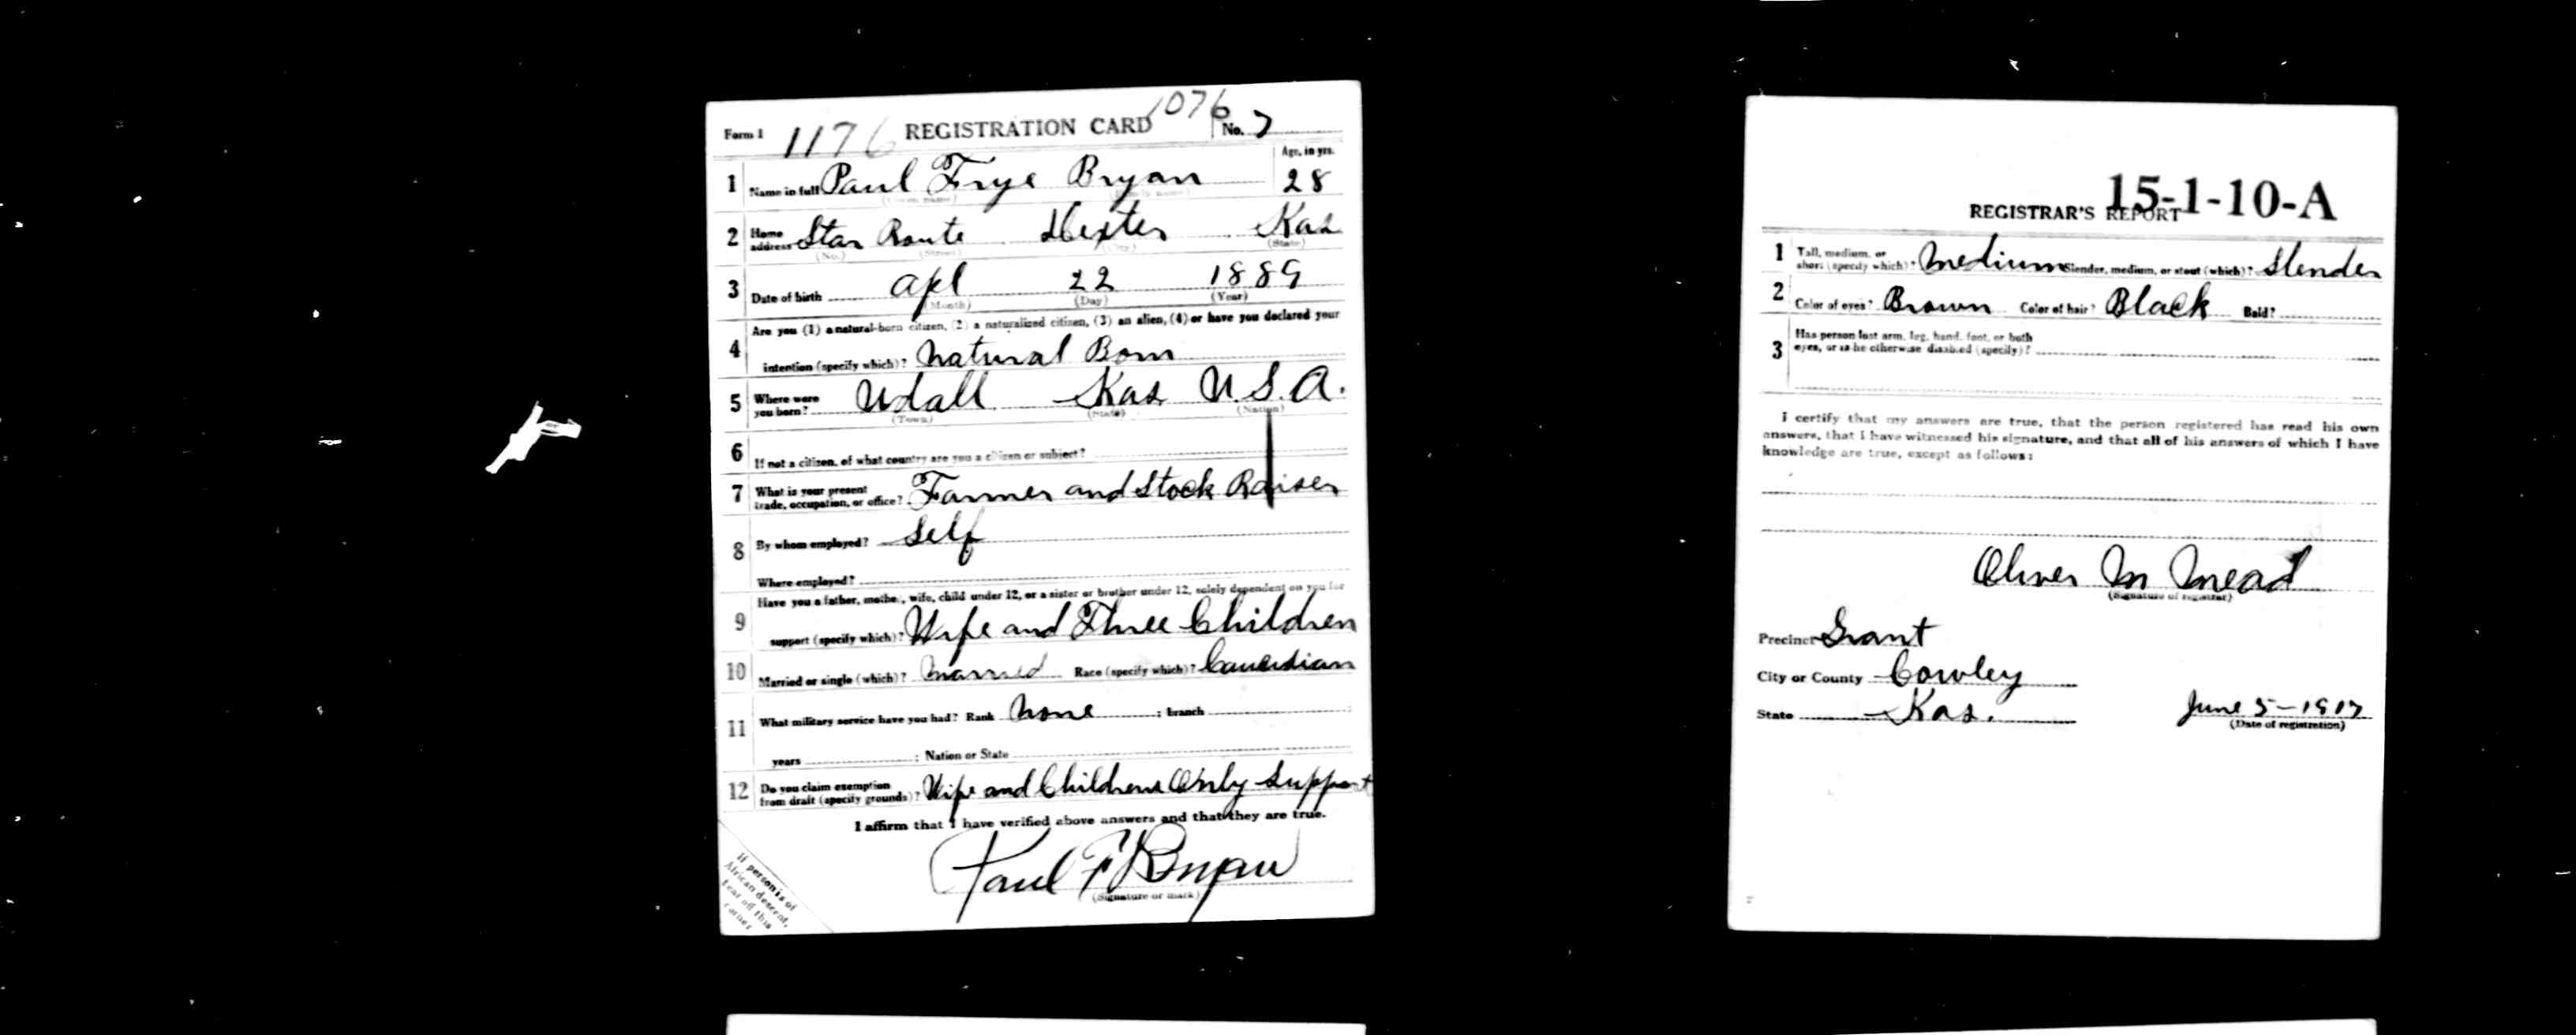 Form 1 1176 REGISTRATION CARD 1076 No. 7
Age, in yrs.
1 Name in full Paul Frye Bryan 28
(Given name) (Family name)
2 Home address Star Route Dexter Kas
(No.) (Street) (City) (State)
3 Date of birth Apl 22 1889
(Month) (Day) (Year)
Are you (1) a natural-born citizen, (2) a naturalized citizen, (3) an alien, (4) or have you declared your
4 intention (specify which)? Natural Born
5 Where were you born? Udall Kas U.S.A.
(Town) (State) (Nation)
6 If not a citizen, of what country are you a citizen or subject?
7 What is your present trade, occupation, or office? Farmer and Stock Raiser
8 By whom employed? Self
Where employed?
Have you a father, mother, wife, child under 12, or a sister or brother under 12, solely dependent on you for
9 support (specify which)? Wife and Three Children
10 Married or single (which)? Married Race (specify which)? Caucasian
11 What military service have you had? Rank None ; branch
years ; Nation or State
12 Do you claim exemption from draft (specify grounds)? Wife and Childrens Only Support
I affirm that I have verified above answers and that they are true.
Paul F Bryan
(Signature or mark)
If person is of
African descent,
tear off this
corner
15-1-10-A
REGISTRAR'S REPORT
1 Tall, medium, or short (specify which)? Medium Slender, medium, or stout (which)? Slender
2 Color of eyes? Brown Color of hair? Black Bald?
3 Has person lost arm, leg, hand, foot, or both eyes, or is he otherwise disabled (specify)?
I certify that my answers are true, that the person registered has read his own
answers, that I have witnessed his signature, and that all of his answers of which I have
knowledge are true, except as follows:
Oliver M Mead
(Signature of registrar)
Precinct Grant
City or County Cowley
State Kas. June 5-1917
(Date of registration)